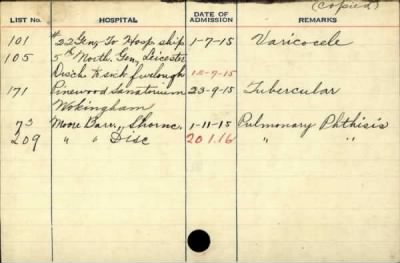 (Copied)
LIST No. HOSPITAL DATE OF ADMISSION REMARKS
101 #22 Gen. To Hosp ship 1-7-15 Varicocele
105 5th North. Gen, Leicester
Disch to sick furlough 15-7-15
171 Pinewood Sanatorium 23-9-15 Tubercular
Wokingham
73 Moore Barr., Shornc. 1-11-15 Pulmonary Phthisis
209 " " Disc 20.1.16 " "